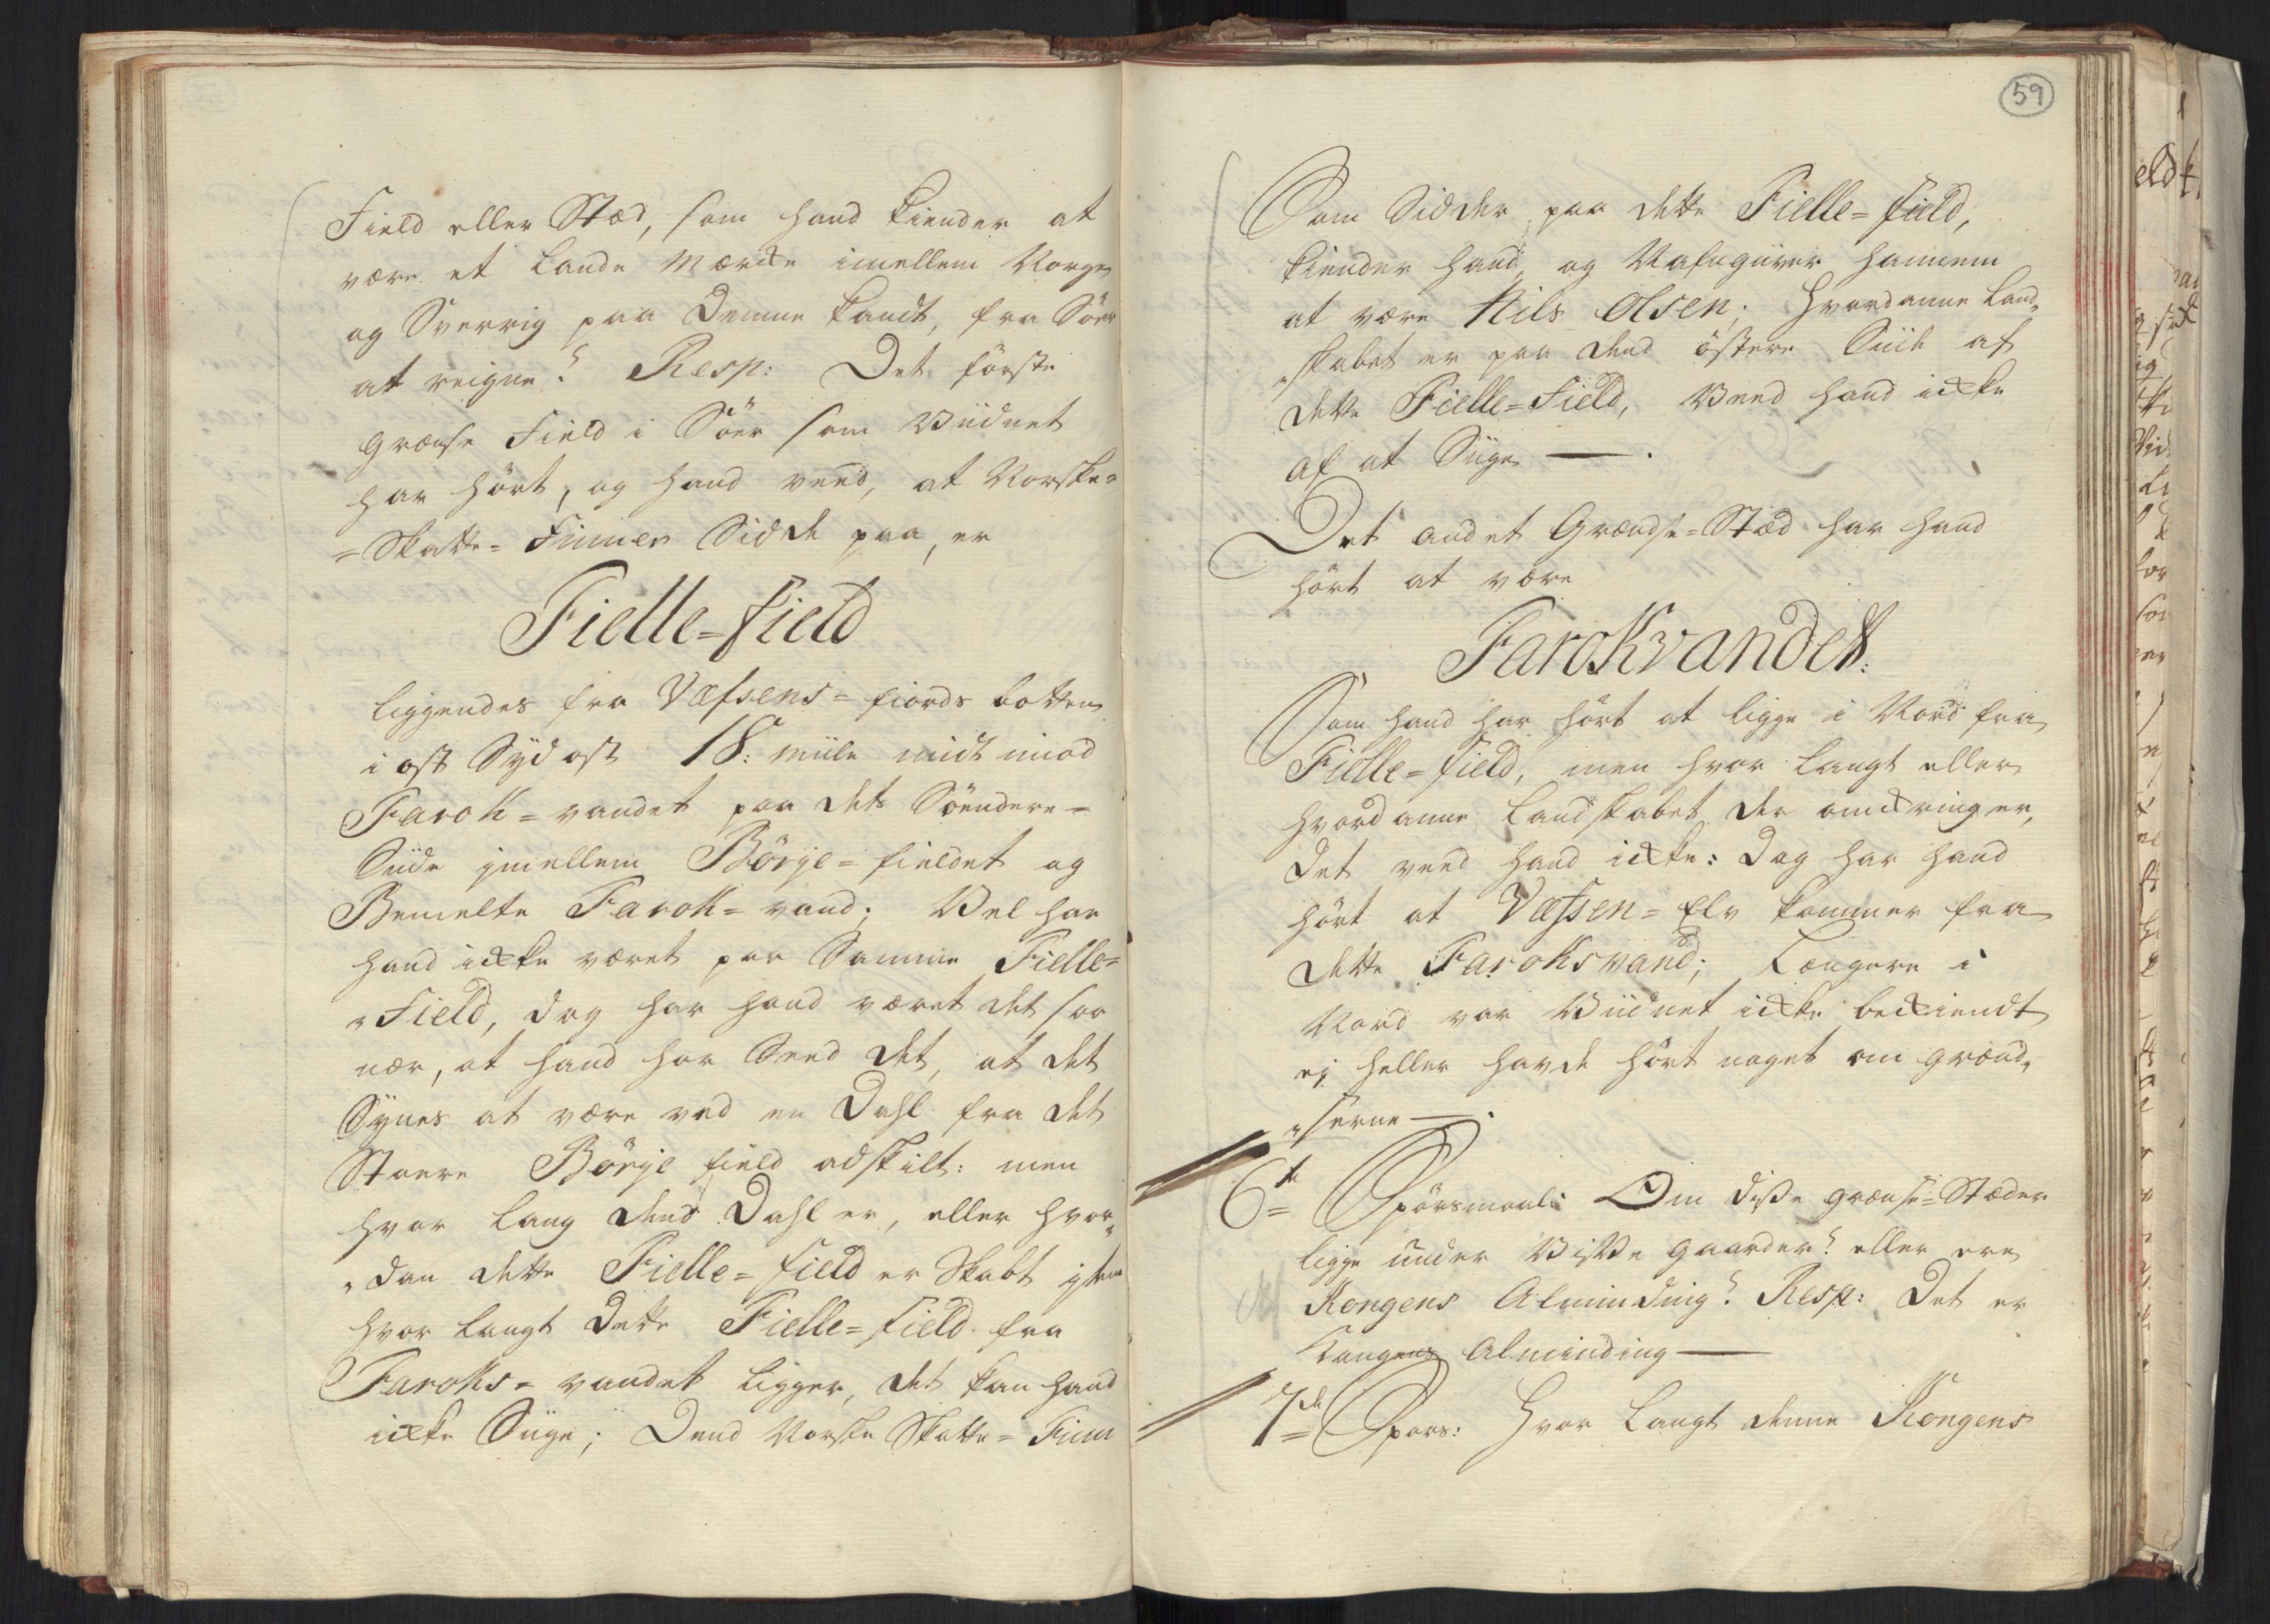 Field eller Stæd, som hand kiender at
være et Lande Mærcke imellem Norge
og Sverrig paa Denne kandt, fra Sör
at reigne? Resp: Det förste
Grænse Field i Söer som Viidnet
har hört, og hand veed, at Norske=
=Skatte=Finner Sidde paa, er
Fielle=field
liggendes fra Væfsens=fiords botten
i ost Sydost 18: miile midt imod
Farok=vandet paa dets Söendere=
Siide jmellem Börje=fieldet og
Bemelte Farok=vand; Vel har
hand icke været paa Samme Fielle=
=Field, dog har hand været det saa
nær, at hand har Seed det, at det
Synes at være ved en Dahl fra det
Stoere Börje field adskilt: men
hvor lang dend Dahl er, eller hvor=
=dan dette Fielle=field er Skabt
hvor langt Dette Fielle=field fra
Faroks=vandet ligger, det kan hand
icke Siige; Dend Norske Skatte=Finn
59
Som Sidder paa dette Fielle=field,
kiender hand, og Nafngiiver hannem
at være Nils Olsen; hvordanne Land=
=skabet er paa dend östere Siide af
dette Fielle=Field, Veed hand icke
af at Siige —.
Det andet Grændse=Stæd har hand
hört at være
Farokvandet:
Som hand har hört at ligge i Nord fra
Fielle=field, men hvor langt eller
hvordanne Landskabet der omkringer,
det veed hand icke: Dog har hand
hört at Væfsen=Elv kommer fra
dette Faroksvand; Længere i
Nord var Viidnet icke beckiendt
ej heller havde hört noget om grænd=
=serne —.
6te Spörsmaal: Om diße Grænse=Stæder
ligge under Viße Gaarder? eller ere
Kongens Alminding? Resp: Det er
Kongens Alminding —
7de Spörs: Hvor langt denne Kongens